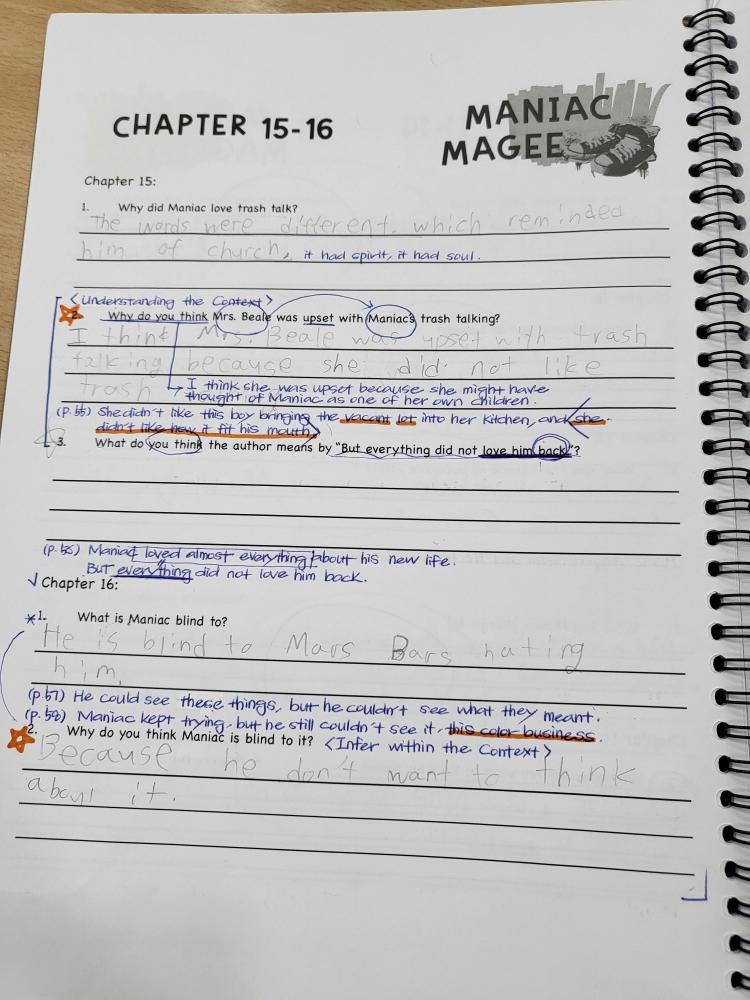 CHAPTER 15-16
MANIAC
MAGEE
Chapter 15:
1. Why did Maniac love trash talk?
The words were different. which reminded
him of church, it had spirit, it had soul.
<Understanding the Context>
2. Why do you think Mrs. Beale was upset with Maniac's trash talking?
I think Mrs. Beale was upset with trash
talking because she did not like
trash
I think she was upset because she might have
thought of Maniac as one of her own children.
(p.55) She didn't like this boy bringing the vacant lot into her kitchen, and she
didn't like how it fit his mouth.
3. What do you think the author means by "But everything did not love him back"?
(p.56) Maniac loved almost everything about his new life.
But everything did not love him back.
√ Chapter 16:
*1. What is Maniac blind to?
He is blind to Mars Bars hating
him.
(p.57) He could see these things, but he couldn't see what they meant.
(p.58) Maniac kept trying, but he still couldn't see it, this color business.
2. Why do you think Maniac is blind to it? <Infer within the Context>
Because he don't want to think
about it.